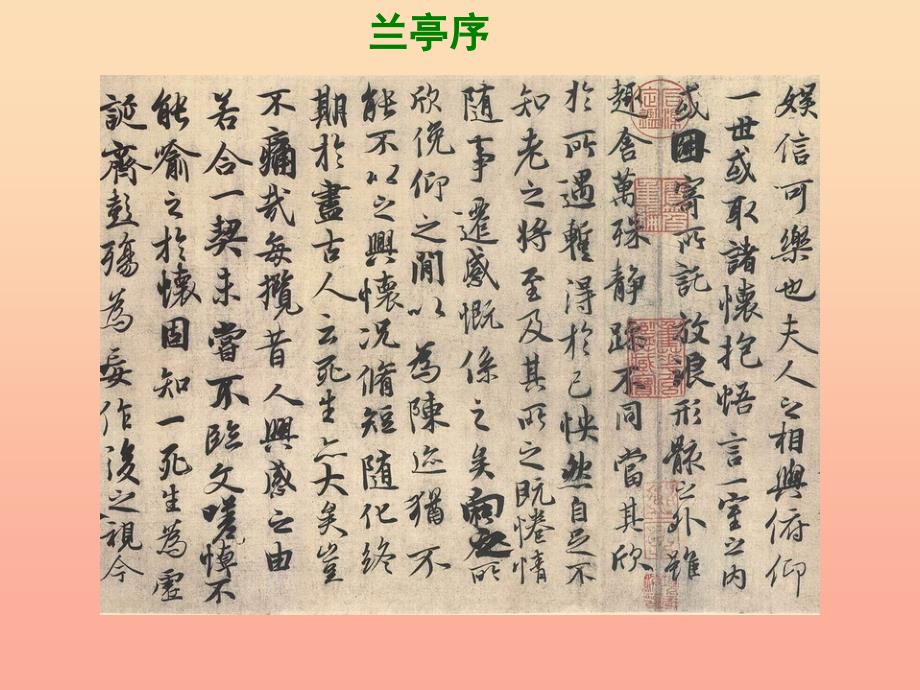 兰亭序
娱信可樂也夫人之相與俯仰
一世或取諸懷抱悟言一室之内
或因寄所託放浪形骸之外雖
趣舍萬殊静躁不同當其欣
於所遇蹔得於己怏然自足不
知老之將至及其所之既惓情
随事遷感慨係之矣向之所
欣俛仰之閒以為陳迹猶不
能不以之興懷况脩短随化終
期於盡古人云死生亦大矣豈
不痛哉每攬昔人興感之由
若合一契未嘗不臨文嗟悼不
能喻之於懷固知一死生為虚
誕齊彭殤為妄作後之視今